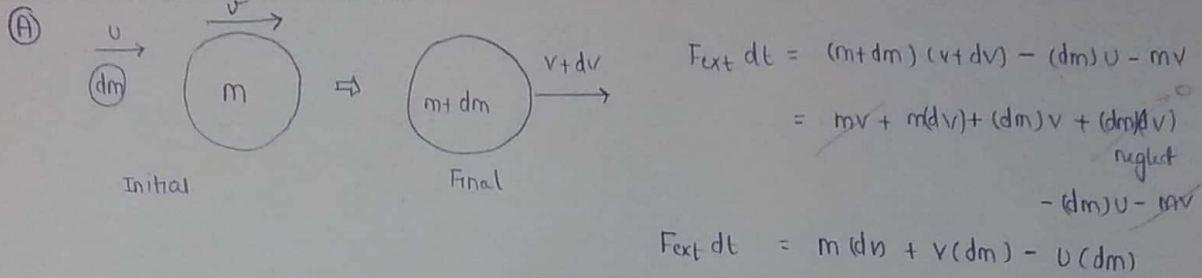 Ⓐ
u
v
dm
m
⇨
m+dm
v+dv
Initial
Final
Fext dt = (m+dm) (v+dv) - (dm)u - mv
= mv + m(dv) + (dm)v + (dm)(dv) 0
neglect
- (dm)u - mv
Fext dt = m(dv) + v(dm) - u(dm)